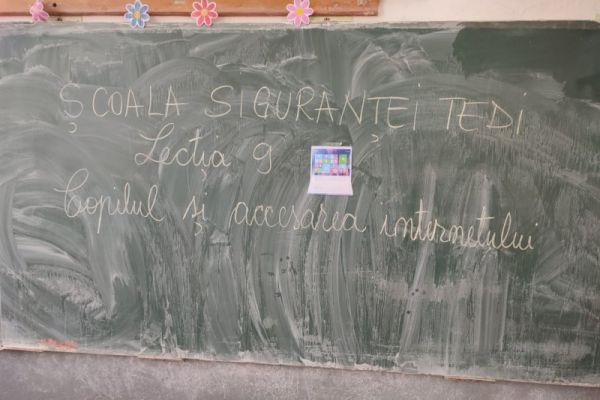 ȘCOALA SIGURANȚEI TEDI
Lecția 9
Copilul și accesarea internetului